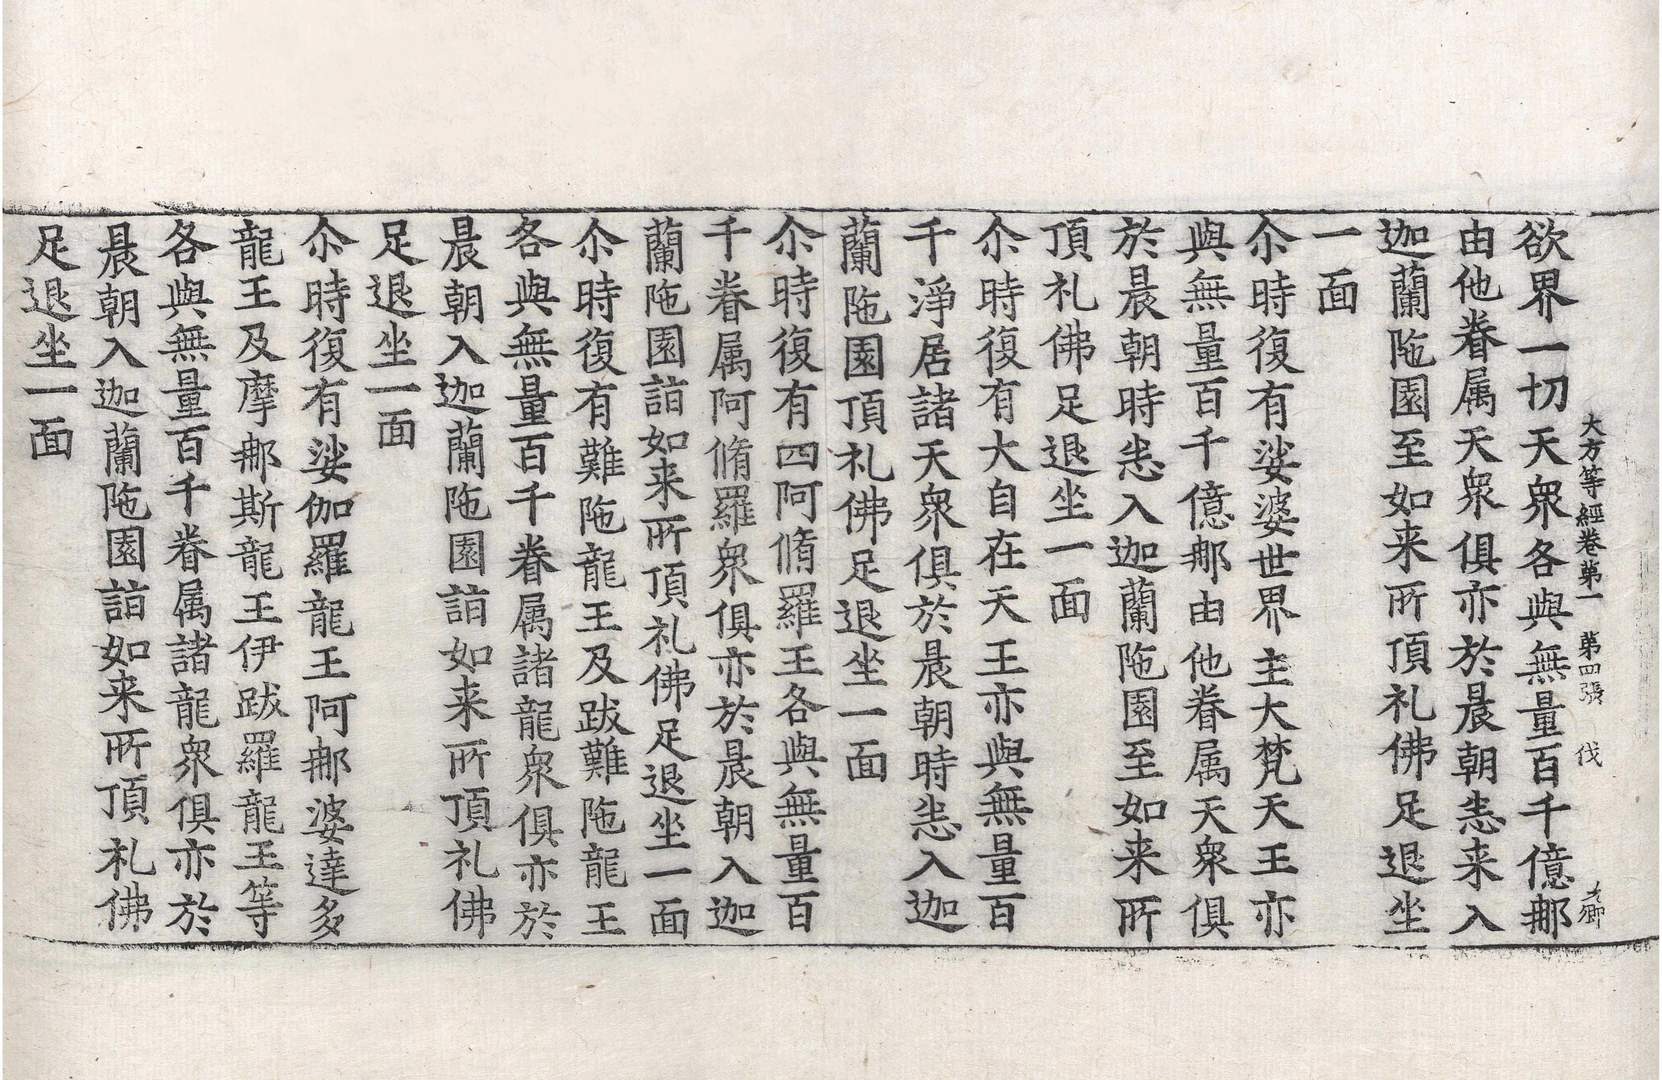 大方等經卷第一　第四張　伐　
欲界一切天衆各與無量百千億那
由他眷属天衆俱亦於晨朝悉来入
迦蘭陁園至如来所頂礼佛足退坐
一面
尒時復有娑婆世界主大梵天王亦
與無量百千億那由他眷属天衆俱
於晨朝時悉入迦蘭陁園至如来所
頂礼佛足退坐一面
尒時復有大自在天王亦與無量百
千淨居諸天衆俱於晨朝時悉入迦
蘭陁園頂礼佛足退坐一面
尒時復有四阿脩羅王各與無量百
千眷属阿脩羅衆俱亦於晨朝入迦
蘭陁園詣如来所頂礼佛足退坐一面
尒時復有難陁龍王及跋難陁龍王
各與無量百千眷属諸龍衆俱亦於
晨朝入迦蘭陁園詣如来所頂礼佛
足退坐一面
尒時復有娑伽羅龍王阿那婆達多
龍王及摩那斯龍王伊跋羅龍王等
各與無量百千眷属諸龍衆俱亦於
晨朝入迦蘭陁園詣如来所頂礼佛
足退坐一面